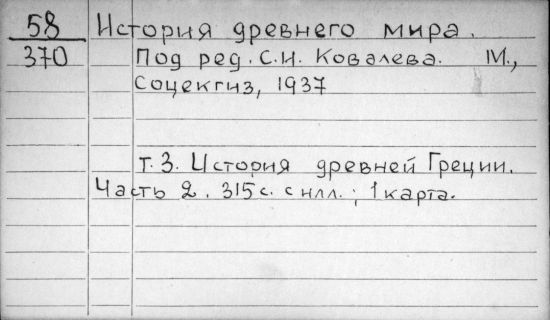 58 История древнего мира.
370 Под ред. С.И. Ковалева. М.,
Соцекгиз, 1937
т. 3. История древней Греции.
Часть 2. 315 с. с илл.; 1 карта.